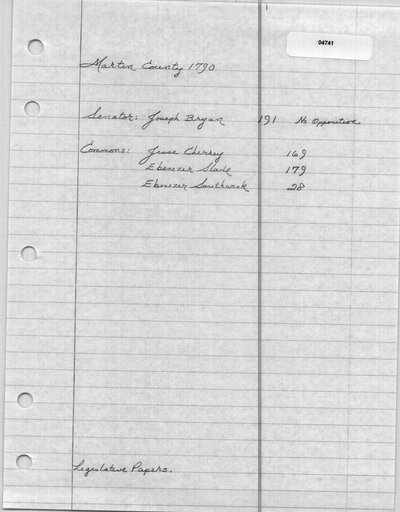 04741
Martin County 1790
Senator: Joseph Bryan 191 No Opposition
Commons: Jesse Cherrey 169
Ebenezer Slade 179
Ebenezer Southwick 28
Legislative Papers.